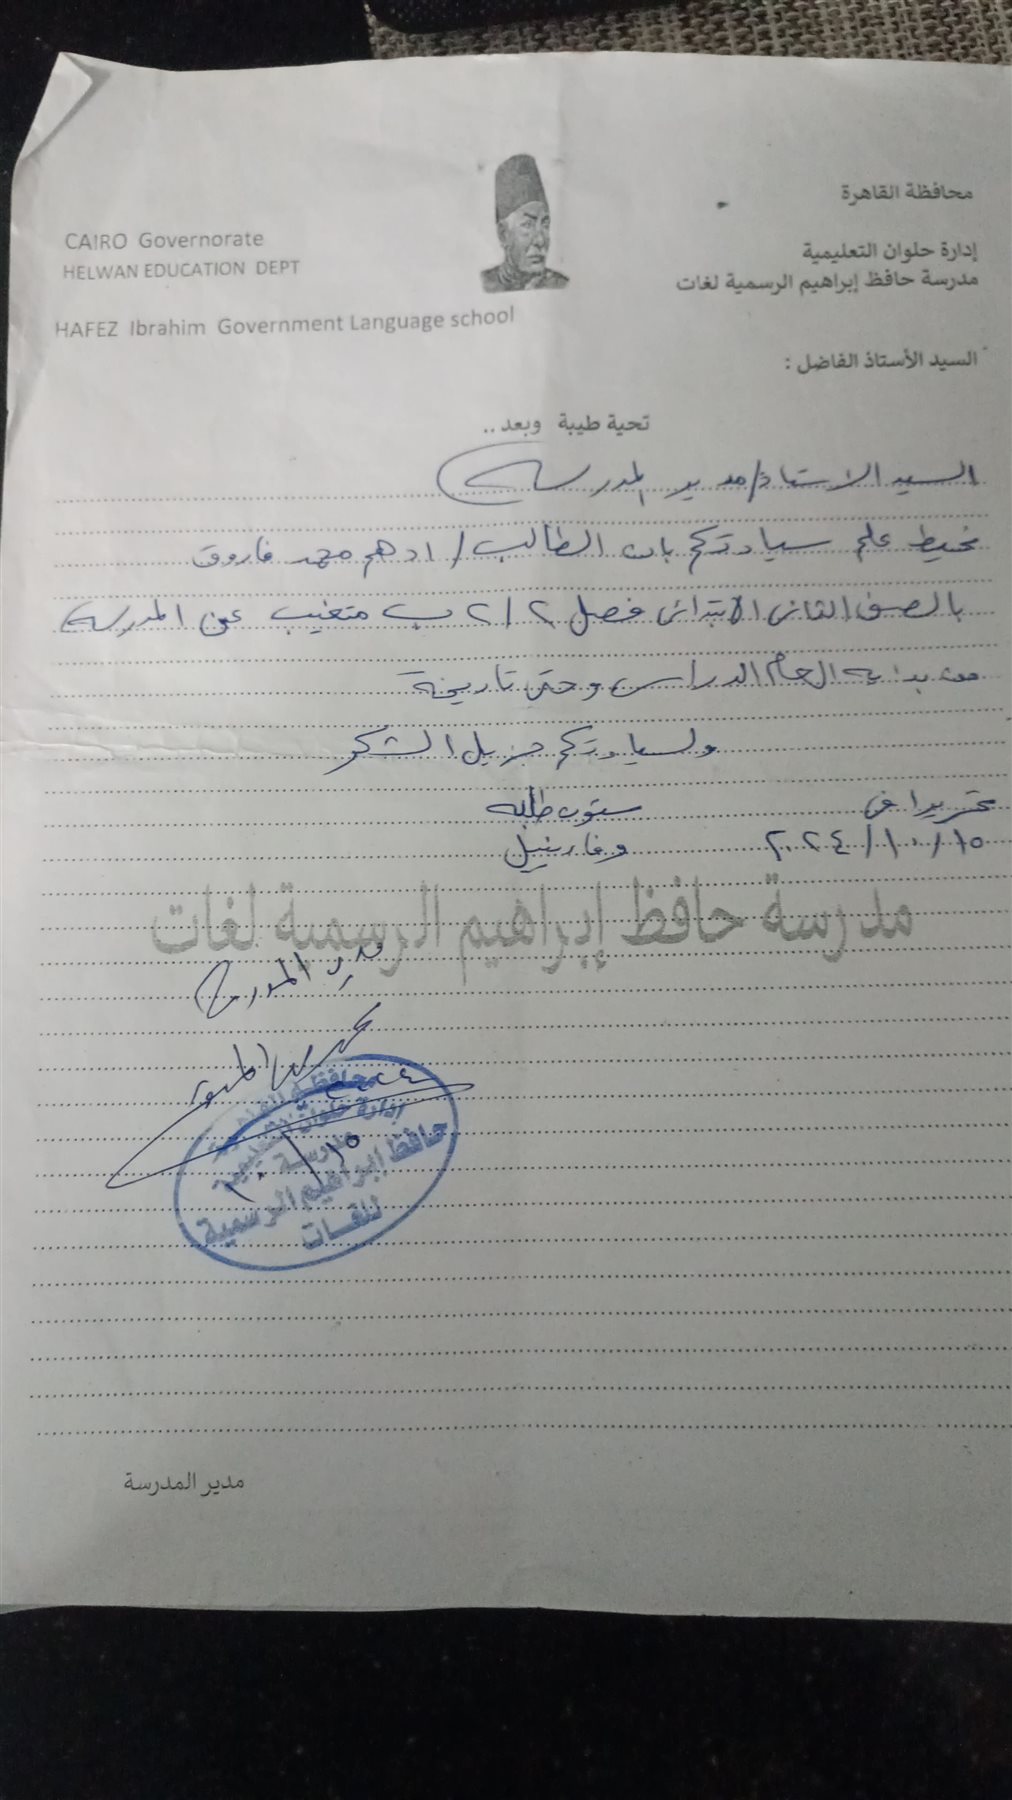 محافظة القاهرة
إدارة حلوان التعليمية
مدرسة حافظ إبراهيم الرسمية لغات
CAIRO Governorate
HELWAN EDUCATION DEPT
HAFEZ Ibrahim Government Language school
السيد الأستاذ الفاضل :
تحية طيبة وبعد ..
السيد الاستاذ/ مدير المدرسه
نحيط علم سيادتكم بان الطالب/ ادهم محمد فاروق
بالصف الثانى الابتدائى فصل ٢/٢ ب متغيب عن المدرسه
من بدايه العام الدراسى وحتى تاريخة
ولسيادتكم جزيل الشكر
تحريرا فى
١٥/١٠/٢٠٢٤
شئون طلبه
مدرسة حافظ إبراهيم الرسمية لغات
مدير المدرسة
محافظة القاهرة
إدارة حلوان التعليمية
مدرسة
حافظ إبراهيم الرسمية
للغات
٢٠٢٤
١٥/١٠
مدير المدرسة